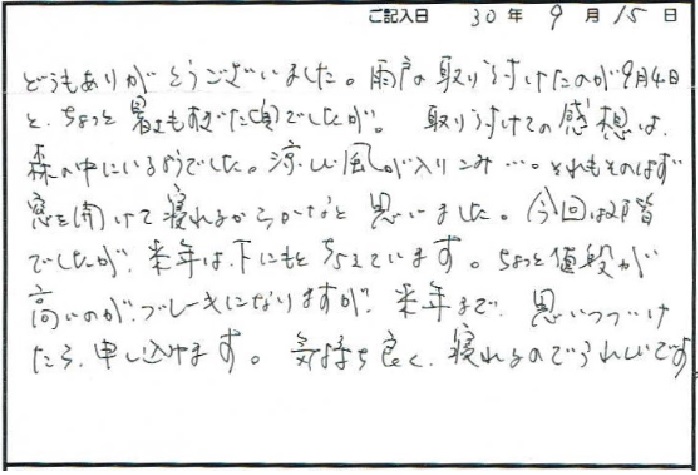 ご記入日 30年 9月 15日
どうもありがとうございました。雨戸の取り付けたのが9月4日
と、ちょっと暑さもすぎた頃でしたが。取り付けての感想は、
森の中にいるようでした。涼しい風が入りこみ…。それもそのはず
窓を開けて寝れるからかなと思いました。今回は2階
でしたが、来年は、下にもと考えています。ちょっと値段が
高いのが、ブレーキになりますが、来年まで、思いつづけ
たら、申し込けます。気持ち良く、寝れるのでうれしいです